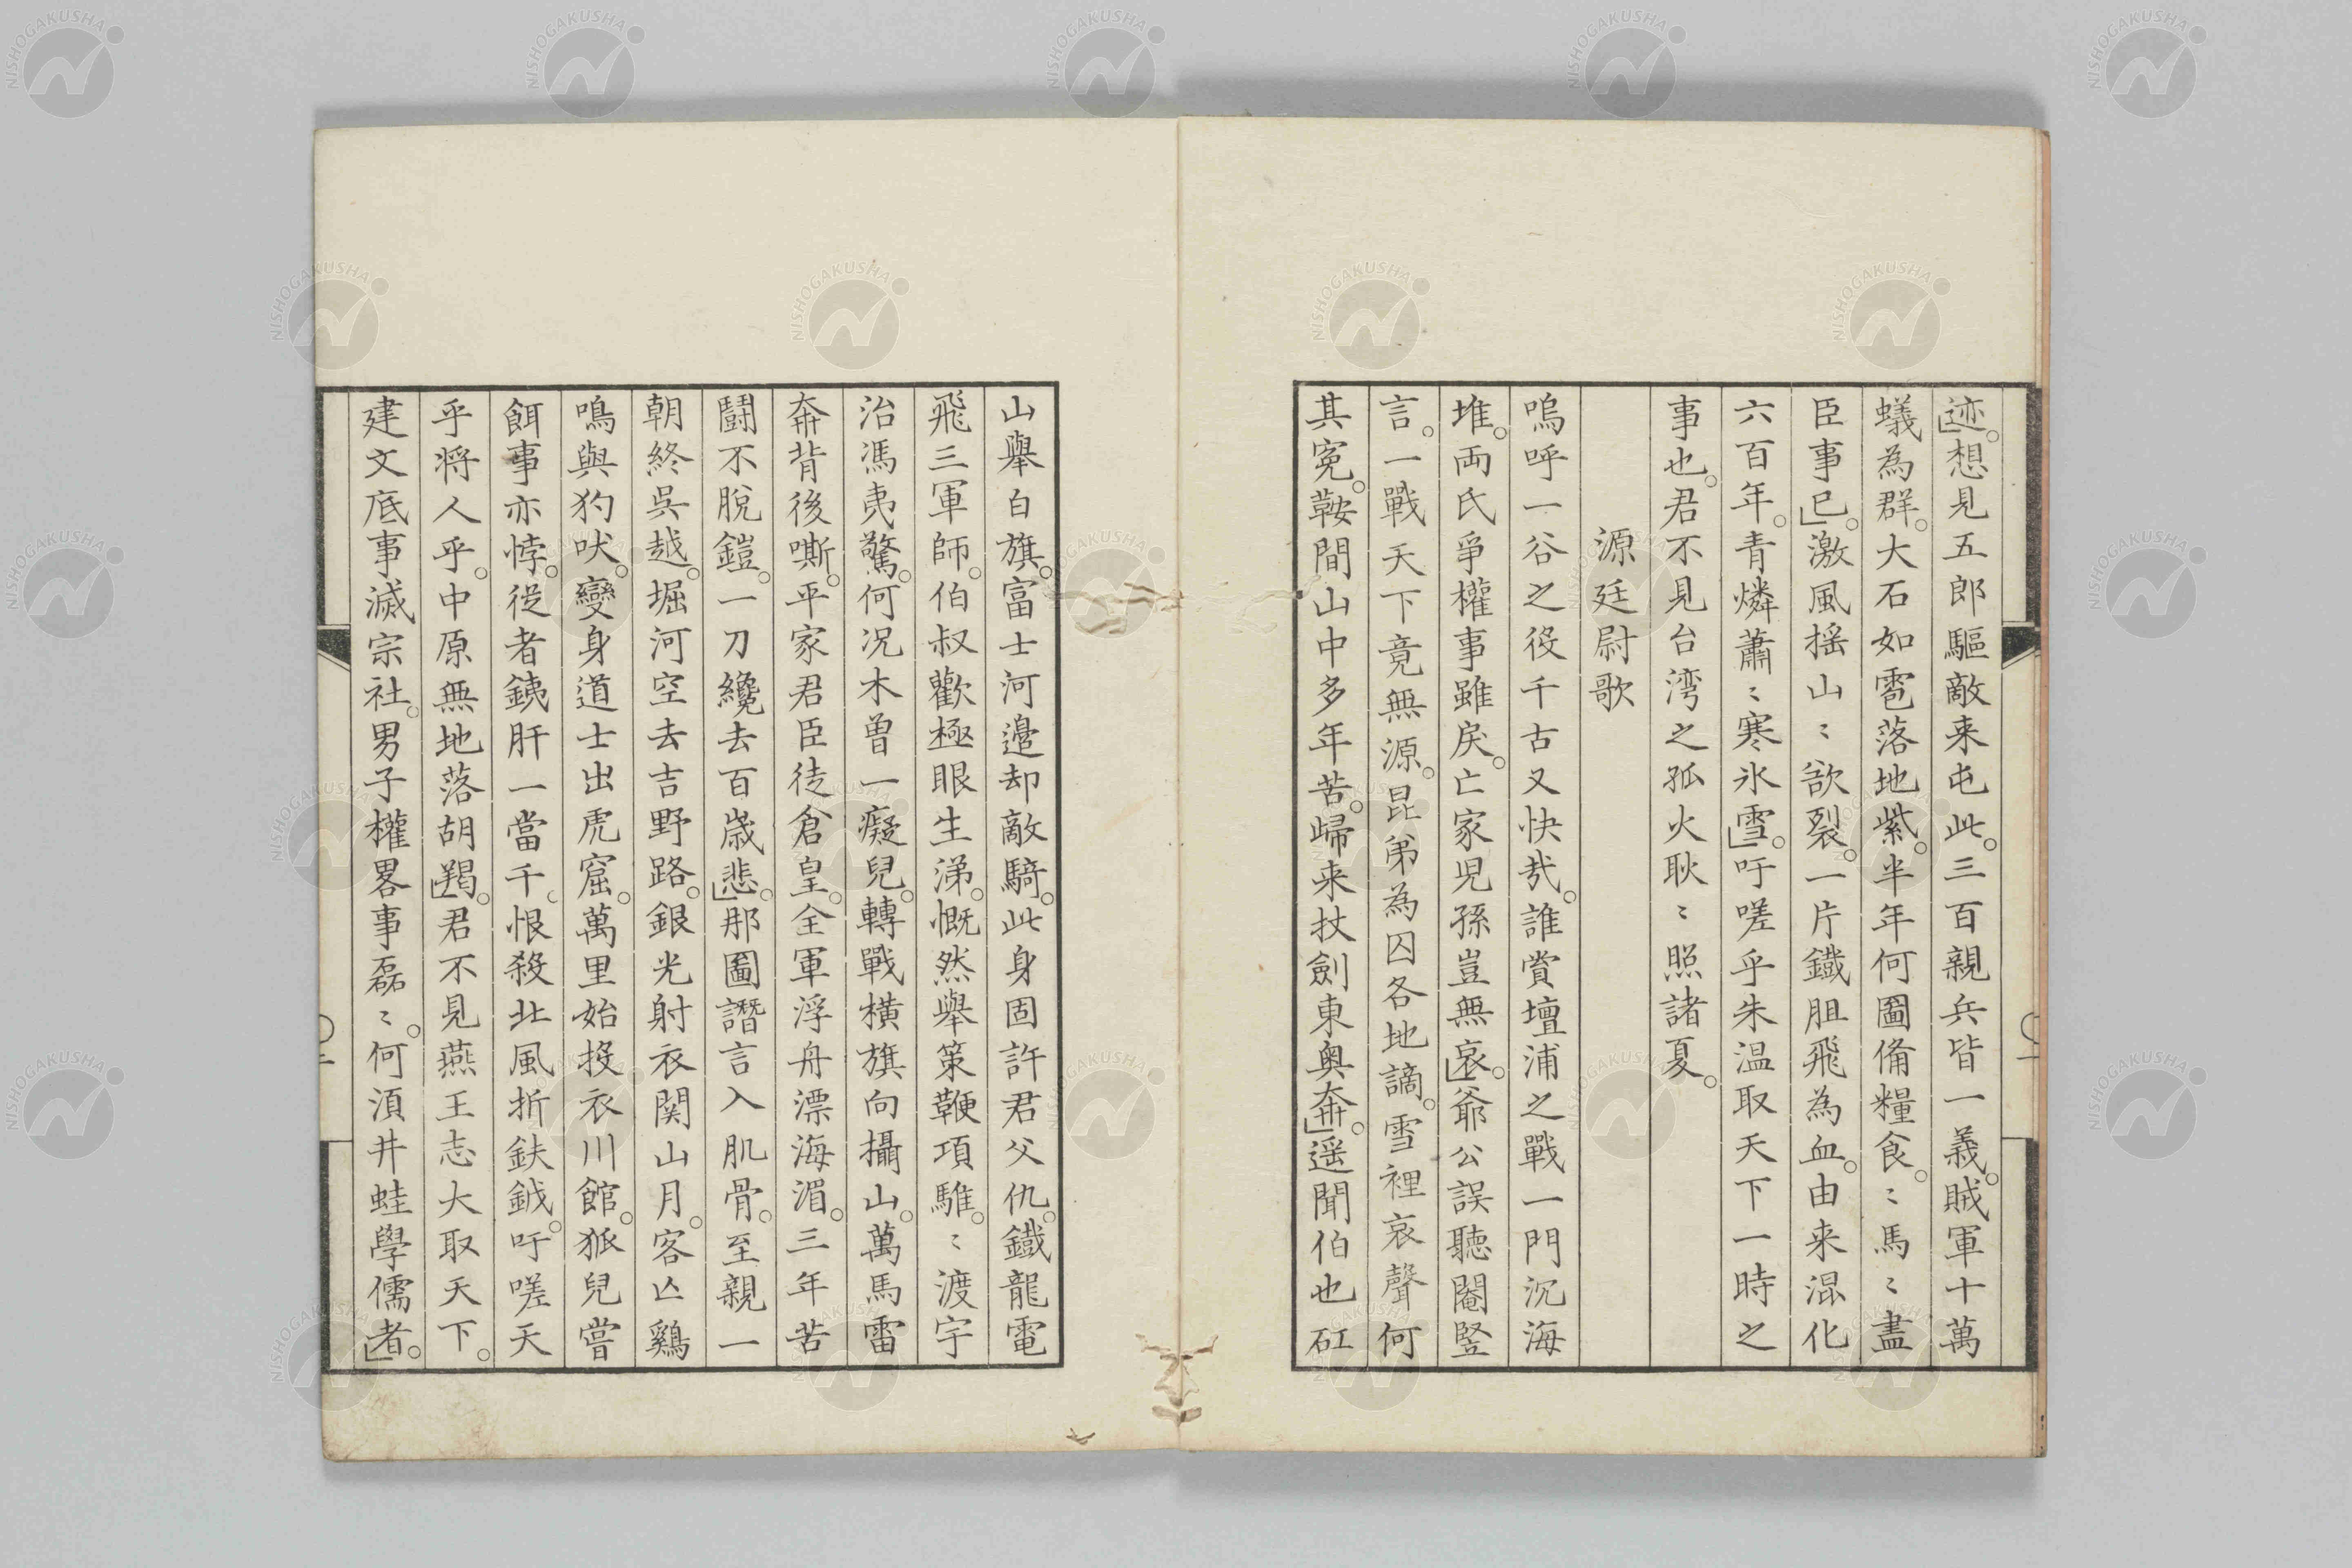 迹。」想見五郎驅敵来屯此。三百親兵皆一義。賊軍十萬
蟻為群。大石如雹落地紫。半年何圖備糧食。〻馬〻盡
臣事已。」激風揺山〻欲裂。一片鐵胆飛為血。由来混化
六百年。青燐蕭〻寒氷雪。」吁嗟乎朱温取天下一時之
事也。君不見台湾之孤火耿〻照諸夏。
源廷尉歌
嗚呼一谷之役千古又快哉。誰賞壇浦之戰一門沉海
堆。両氏爭權事雖戾。亡家児孫豈無哀。」爺公誤聽閹豎
言。一戰天下竟無源。昆弟為囚各地謫。雪裡哀聲何
其寃。鞍間山中多年苦。歸来杖劍東奥奔。」遥聞伯也矼
山舉白旗。富士河邉却敵騎。此身固許君父仇。鐵龍電
飛三軍師。伯叔歡極眼生涕。慨然舉策鞭項騅。〻渡宇
治馮夷驚。何况木曽一癡兒。轉戰横旗向攝山。萬馬雷
奔背後嘶。平家君臣徒倉皇。全軍浮舟漂海湄。三年苦
鬪不脫鎧。一刀纔去百歳悲。」那圖譖言入肌骨。至親一
朝終吳越。堀河空去吉野路。銀光射衣関山月。客亡鷄
鳴與犳吠。變身道士出虎窟。萬里始投衣川館。狐兒嘗
餌事亦悖。從者銕肝一當千。恨殺北風折鈇鉞。吁嗟天
乎将人乎。中原無地落胡羯。」君不見燕王志大取天下。
建文底事滅宗社。男子權畧事磊〻。何湏井蛙學儒者。」